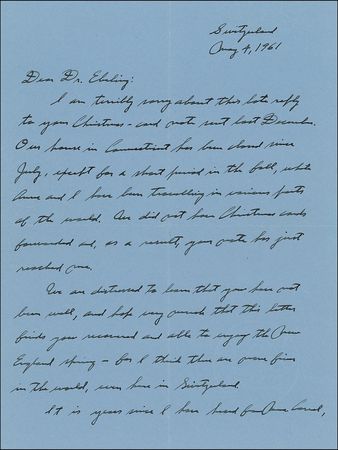 Switzerland
May 4, 1961
Dear Dr. Ebeling:
I am terribly sorry about this late reply
to your Christmas-card note sent last December.
Our house in Connecticut has been closed since
July, except for a short period in the fall, while
Anne and I have been travelling in various parts
of the world. We did not have Christmas cards
forwarded and, as a result, your note has just
reached me.
We are distressed to learn that you have not
been well, and hope very much that this letter
finds you recovered and able to enjoy the New
England spring — for I think there are none finer
in the world, even here in Switzerland
It is years since I have heard from